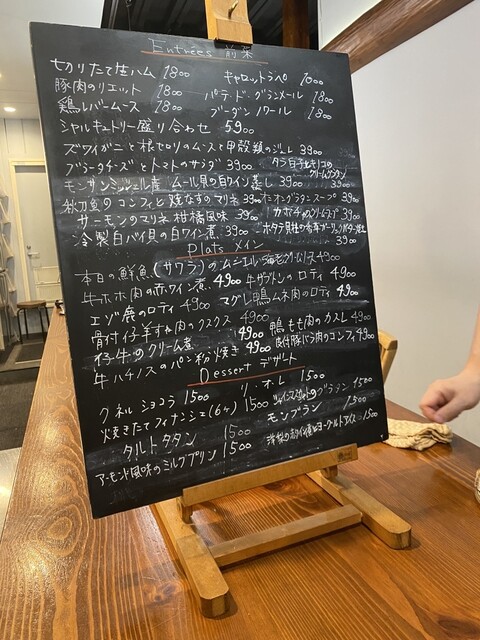 Entrées 前菜
切りたて生ハム 1800 キャロットラペ 1000
豚肉のリエット 1800 パテ・ド・グランメール 1800
鶏レバームース 1800 ブーダンノワール 1800
シャルキュトリー盛り合わせ 5900
ズワイガニと根セロリのムースと甲殻類のジュレ 3900
ブラータチーズとトマトのサラダ 3900 タラ白子とキノコのクリームグラタン 3900
モンサンミッシェル産 ムール貝の白ワイン蒸し 3900
秋刀魚のコンフィと焼なすのマリネ 3900 オニオングラタンスープ 3900
サーモンのマリネ 柑橘風味 3900 カボチャのクリームスープ
冷製白バイ貝の白ワイン煮 3900 ホタテ貝柱の香草ガーリックバター焼
Plats メイン
本日の鮮魚(サワラ)のムニエル 4900
牛ホホ肉の赤ワイン煮 4900 牛ザブトンのロティ 4900
エゾ鹿のロティ 4900 マグレ鴨ムネ肉のロティ 4900
骨付仔羊すね肉のクスクス 4900 鴨もも肉のカスレ 4900
仔牛のクリーム煮 4900 皮付豚バラ肉のコンフィ 4900
牛ハチノスのパン粉焼き 4900
Dessert デザート
クネルショコラ 1500 リ・オ・レ 1500
焼きたてフィナンシェ(6ヶ) 1500 グラタン 1500
タルトタタン 1500 モンブラン 1500
アーモンド風味のミルクプリン 1500 洋梨の赤ワイン煮とヨーグルトアイス 1500